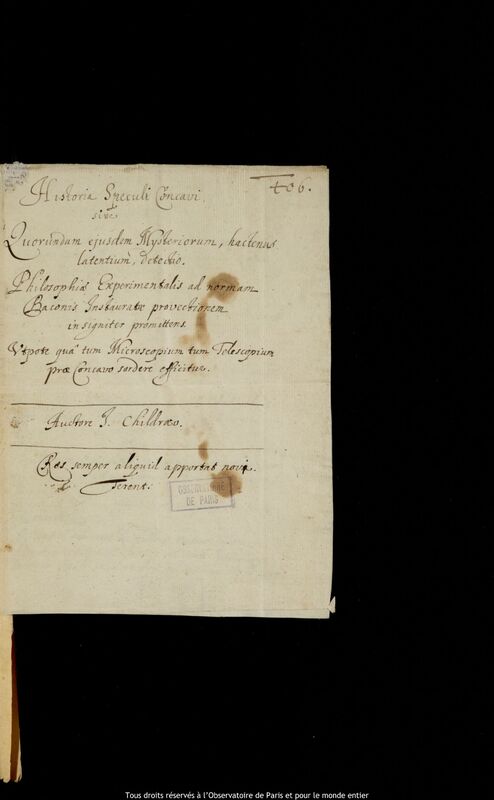 406.
Historia Speculi Concavi,
sive
Quorundam ejusdem Mysteriorum, hactenus
latentium, detectio.
Philosophiæ Experimentalis ad normam
Baconis Instauratæ provectionem
insigniter promittens.
Utpote quâ tum Microscopium tum Telescopium
præ Concavo sordere efficitur.
Auctore J. Childræo.
Res semper aliquid apportat novi.
Terent:
OBSERVATOIRE
DE PARIS
Tous droits réservés à l'Observatoire de Paris et pour le monde entier